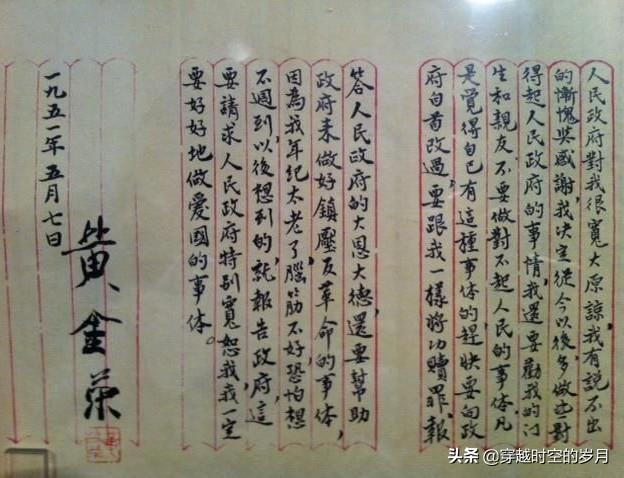 人民政府對我很寬大原諒，我有説不出
的慚愧與感謝，我决定從今以後多做些對
得起人民政府的事情我還要勸我的门
生和親友不要做對不起人民的事体凡
是覺得自己有這種事体的趕快要向政
府自首改過，要跟我一樣將功贖罪，報
答人民政府的大恩大德，還要幫助
政府来做好鎮壓反革命的事体，
因為我年纪太老了腦筋不好恐怕想
不週到以後想到的，就報告政府，這
要請求人民政府特别寬恕我，我一定
要好好地做愛國的事体。
一九五一年五月七日
黄金荣
头条 @穿越时空的岁月